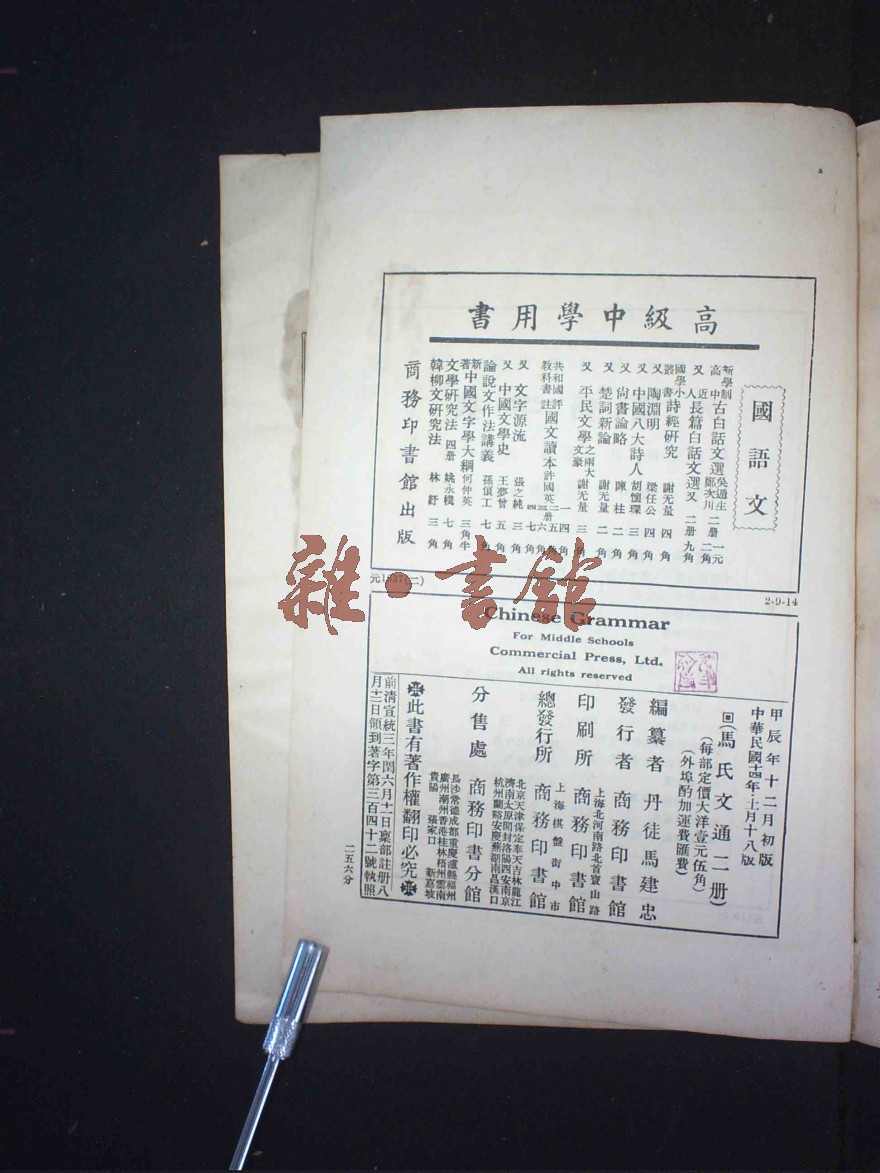 高級中學用書
國語文
新學制高中 古白話文選 吳遁生 鄭次川 二册 一元二角
又 近人長篇白話文選 又 二册 九角
國學小叢書 詩經研究 謝无量 四角
又 陶淵明 梁任公 四角
又 中國八大詩人 胡懷琛 三角
又 尙書論略 陳柱 二角
又 楚詞新論 謝无量 二角
又 平民文學之兩大文豪 謝无量 三角
共和國教科書 評註 國文讀本 許國英
又 文字源流 張之純 三角
又 中國文學史 王夢曾 五角
論說文作法講義 孫俍工 七角
新著中國文字學大綱 何仲英 三角半
文學研究法 四册 姚永樸 七角
韓柳文研究法 林紓 三角
商務印書館出版
元1837(二)
2-9-14
Chinese Grammar
For Middle Schools
Commercial Press, Ltd.
All rights reserved
甲辰年十二月初版
中華民國十四年十一月十八版
(馬氏文通二册)
(每部定價大洋壹元伍角)
(外埠酌加運費匯費)
編纂者 丹徒馬建忠
發行者 商務印書館
上海北河南路北首寶山路
印刷所 商務印書館
上海棋盤街中市
總發行所 商務印書館
北京天津保定奉天吉林龍江
濟南太原開封洛陽西安南京
杭州蘭谿安慶蕪湖南昌漢口
分售處 商務印書分館
長沙常德成都重慶瀘縣福州
廣州潮州香港桂林梧州雲南
貴陽 張家口 新嘉坡
此書有著作權翻印必究
前清宣統三年閏六月十一日稟部註册八
月十二日領到著字第三百四十二號執照
二五六分
雜·書館